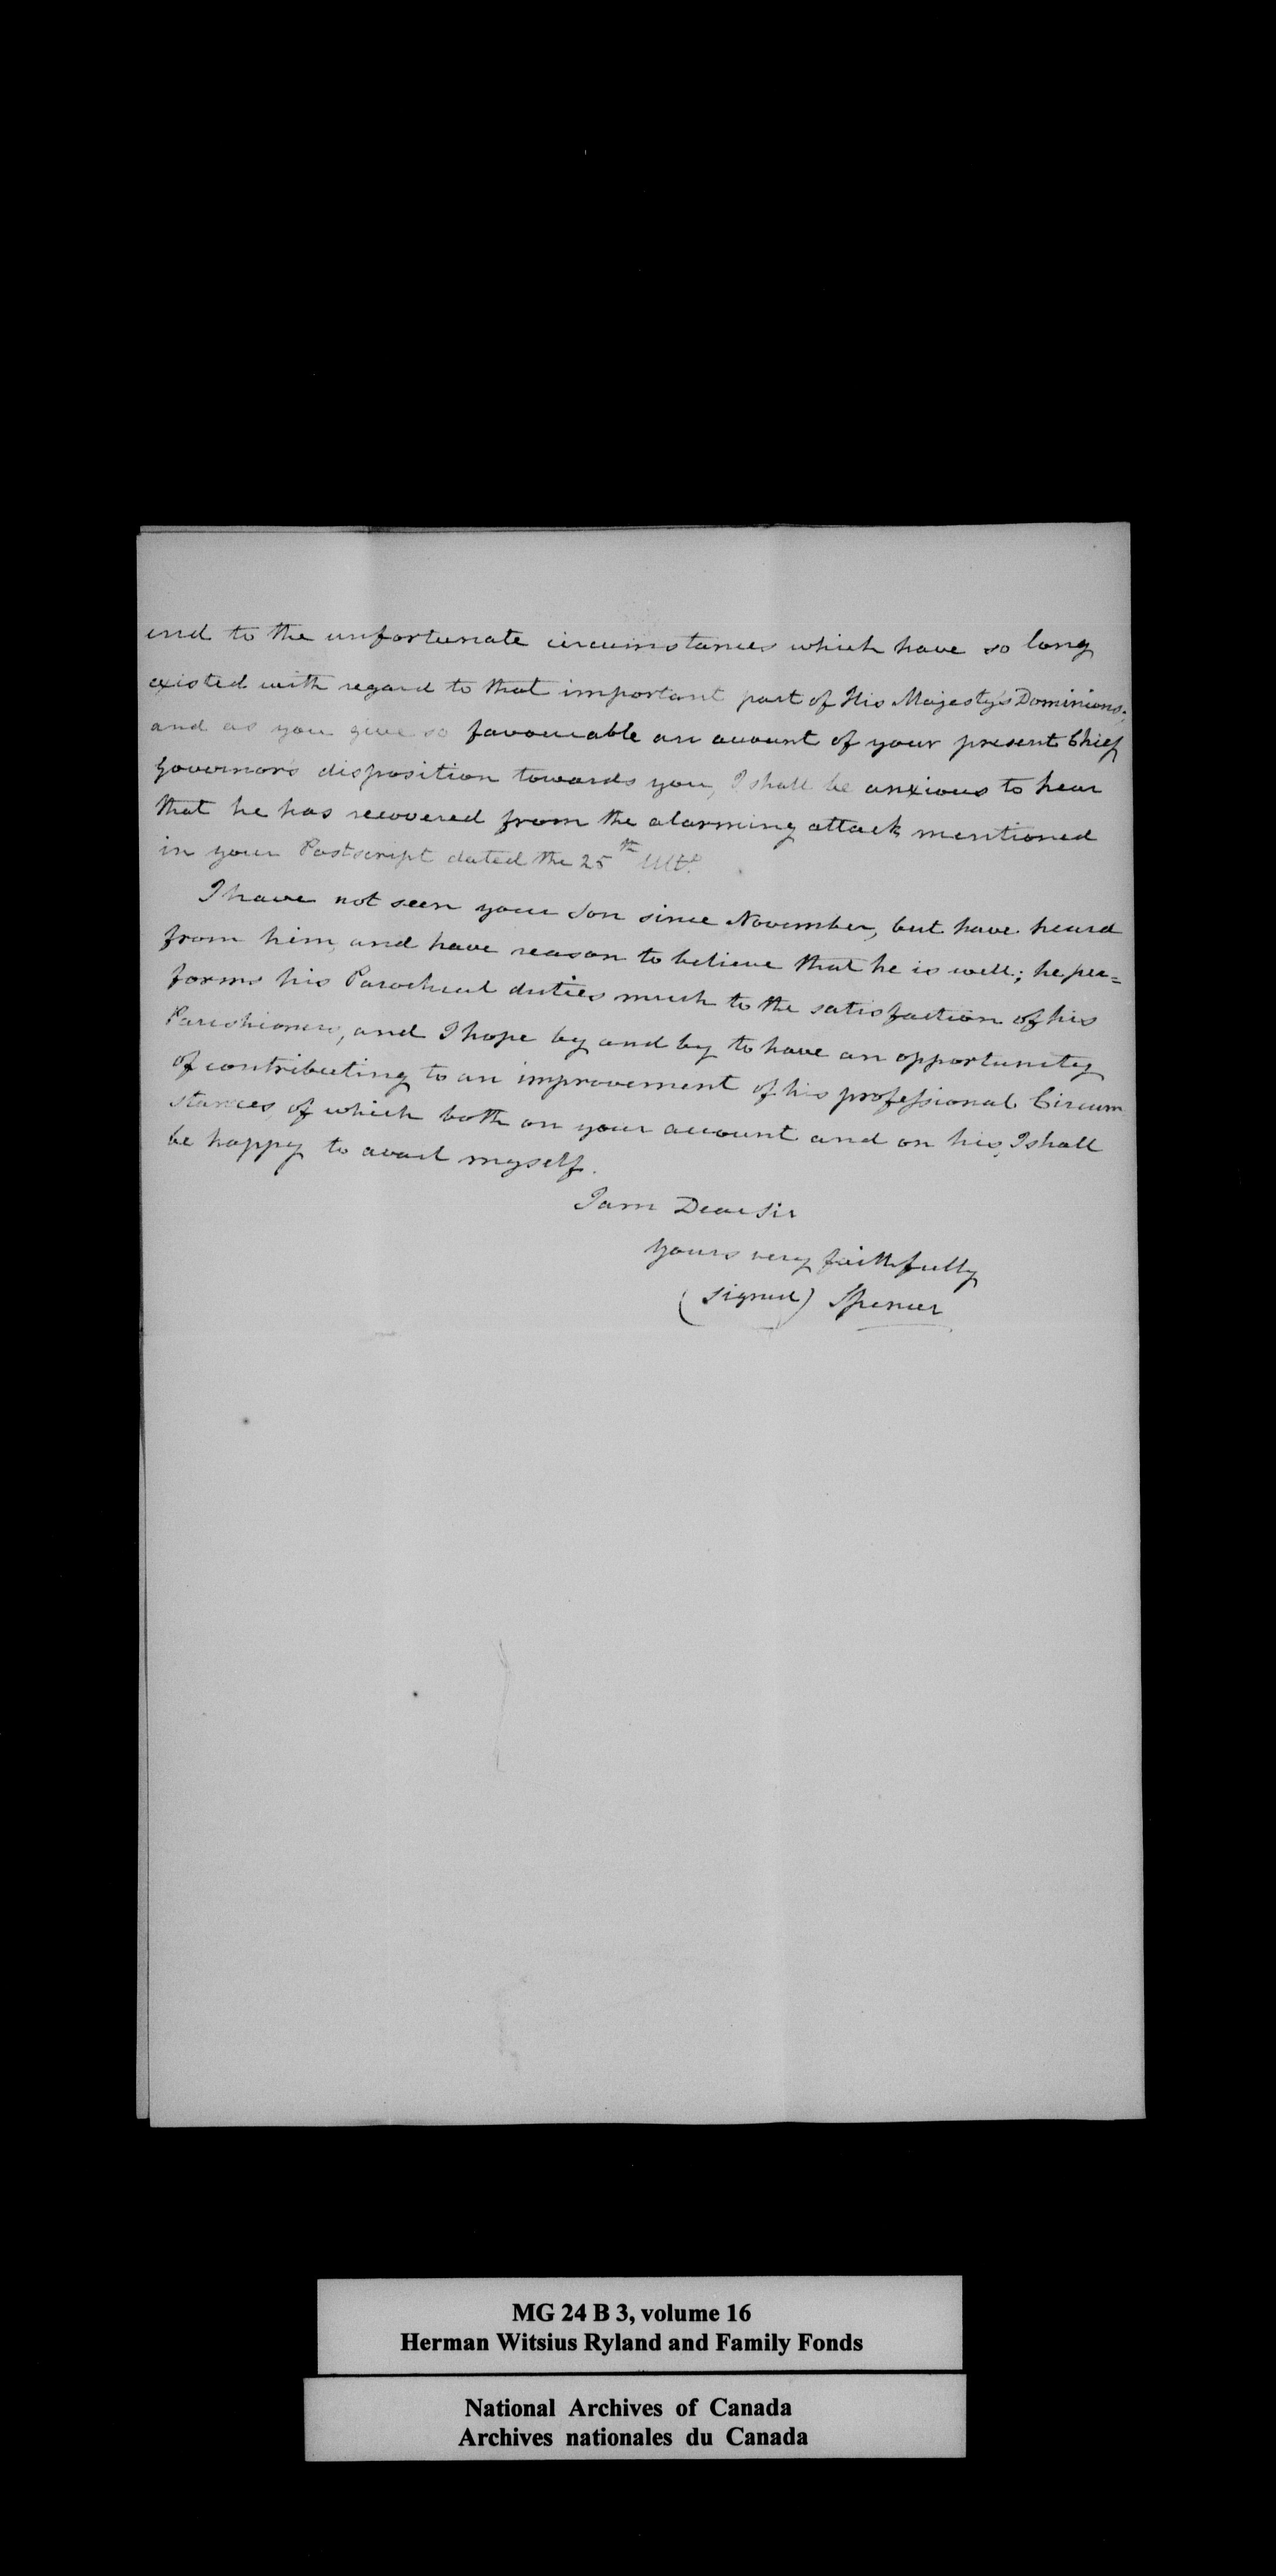 end to the unfortunate circumstances which have so long
existed with regard to that important part of His Majesty's Dominions;
and as you give so favourable an account of your present Chief
Governor's disposition towards you, I shall be anxious to hear
that he has recovered from the alarming attack mentioned
in your Postscript dated the 25th Ulto.
I have not seen your Son since November, but have heard
from him, and have reason to believe that he is well; he per=
forms his Parochial duties much to the satisfaction of his
Parishioners, and I hope by and by to have an opportunity
of contributing to an improvement of his professional Circum
stances, of which both on your account and on his, I shall
be happy to avail myself.
I am Dear Sir
Yours very faithfully
(signed) Spencer
MG 24 B 3, volume 16
Herman Witsius Ryland and Family Fonds
National Archives of Canada
Archives nationales du Canada